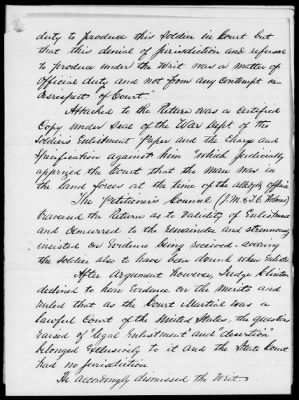 duty to produce this Soldier in Court but
that this denial of jurisdiction and refusal
to produce under the Writ was a matter of
Official duty and not from any Contempt or
disrespect "of Court."
Attached to the Return was a Certified
Copy under Seal of the War Dept of the
Soldiers Enlistment Paper and the Charge and
Specification against him "which judicially
apprised the Court that the man was in
the land forces at the time of the alleged offence
The Petitioner's Counsel (J.M. &
traversed the Return as to Validity of Enlistment
and demurred to the remainder and strenuously
insisted on Evidence being received - averring
the Soldier also to have been drunk when Enlisted
After Argument However, Judge Clinton
declined to hear Evidence on the Merits and
ruled that as the Court Martial was a
lawful Court of the United States, the questions
raised of "legal Enlistment" and "desertion"
belonged Exclusively to it and the State Court
had no jurisdiction
He accordingly dismissed the Writ.